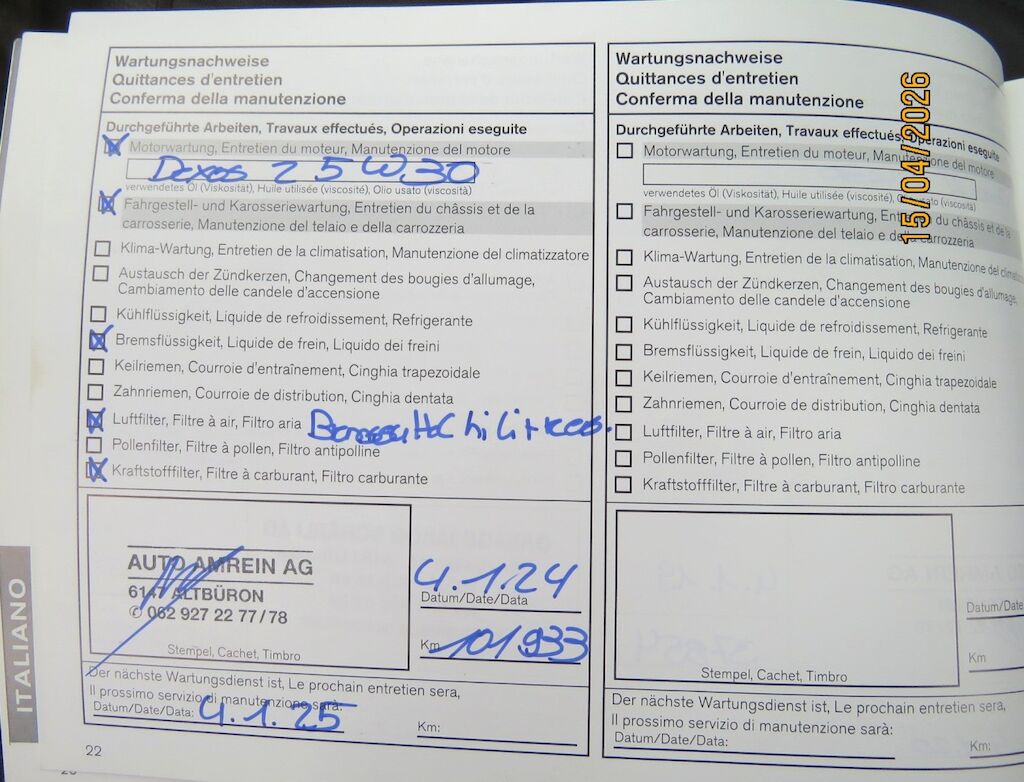 Wartungsnachweise
Quittances d'entretien
Conferma della manutenzione
Durchgeführte Arbeiten, Travaux effectués, Operazioni eseguite
Motorwartung, Entretien du moteur, Manutenzione del motore
Dexos 2 5W30
verwendetes Öl (Viskosität), Huile utilisée (viscosité), Olio usato (viscosità)
Fahrgestell- und Karosseriewartung, Entretien du châssis et de la
carrosserie, Manutenzione del telaio e della carrozzeria
Klima-Wartung, Entretien de la climatisation, Manutenzione del climatizzatore
Austausch der Zündkerzen, Changement des bougies d'allumage,
Cambiamento delle candele d'accensione
Kühlflüssigkeit, Liquide de refroidissement, Refrigerante
Bremsflüssigkeit, Liquide de frein, Liquido dei freini
Keilriemen, Courroie d'entraînement, Cinghia trapezoidale
Zahnriemen, Courroie de distribution, Cinghia dentata
Luftfilter, Filtre à air, Filtro aria
Pollenfilter, Filtre à pollen, Filtro antipolline
Kraftstofffilter, Filtre à carburant, Filtro carburante
AUTO AMREIN AG
6147 ALTBÜRON
✆ 062 927 22 77/78
Stempel, Cachet, Timbro
4.1.24
Datum/Date/Data
Km 101'933
Der nächste Wartungsdienst ist, Le prochain entretien sera,
Il prossimo servizio di manutenzione sarà:
Datum/Date/Data: 4.1.25
Km:
22
ITALIANO
Wartungsnachweise
Quittances d'entretien
Conferma della manutenzione
Durchgeführte Arbeiten, Travaux effectués, Operazioni eseguite
Motorwartung, Entretien du moteur, Manutenzione del motore
verwendetes Öl (Viskosität), Huile utilisée (viscosité), Olio usato (viscosità)
Fahrgestell- und Karosseriewartung, Entretien du châssis et de la
carrosserie, Manutenzione del telaio e della carrozzeria
Klima-Wartung, Entretien de la climatisation, Manutenzione del
Austausch der Zündkerzen, Changement des bougies d'allumage,
Cambiamento delle candele d'accensione
Kühlflüssigkeit, Liquide de refroidissement, Refrigerante
Bremsflüssigkeit, Liquide de frein, Liquido dei freini
Keilriemen, Courroie d'entraînement, Cinghia trapezoidale
Zahnriemen, Courroie de distribution, Cinghia dentata
Luftfilter, Filtre à air, Filtro aria
Pollenfilter, Filtre à pollen, Filtro antipolline
Kraftstofffilter, Filtre à carburant, Filtro carburante
Stempel, Cachet, Timbro
Datum/Date
Km
Der nächste Wartungsdienst ist, Le prochain entretien sera,
Il prossimo servizio di manutenzione sarà:
Datum/Date/Data:
Km:
15/04/2026